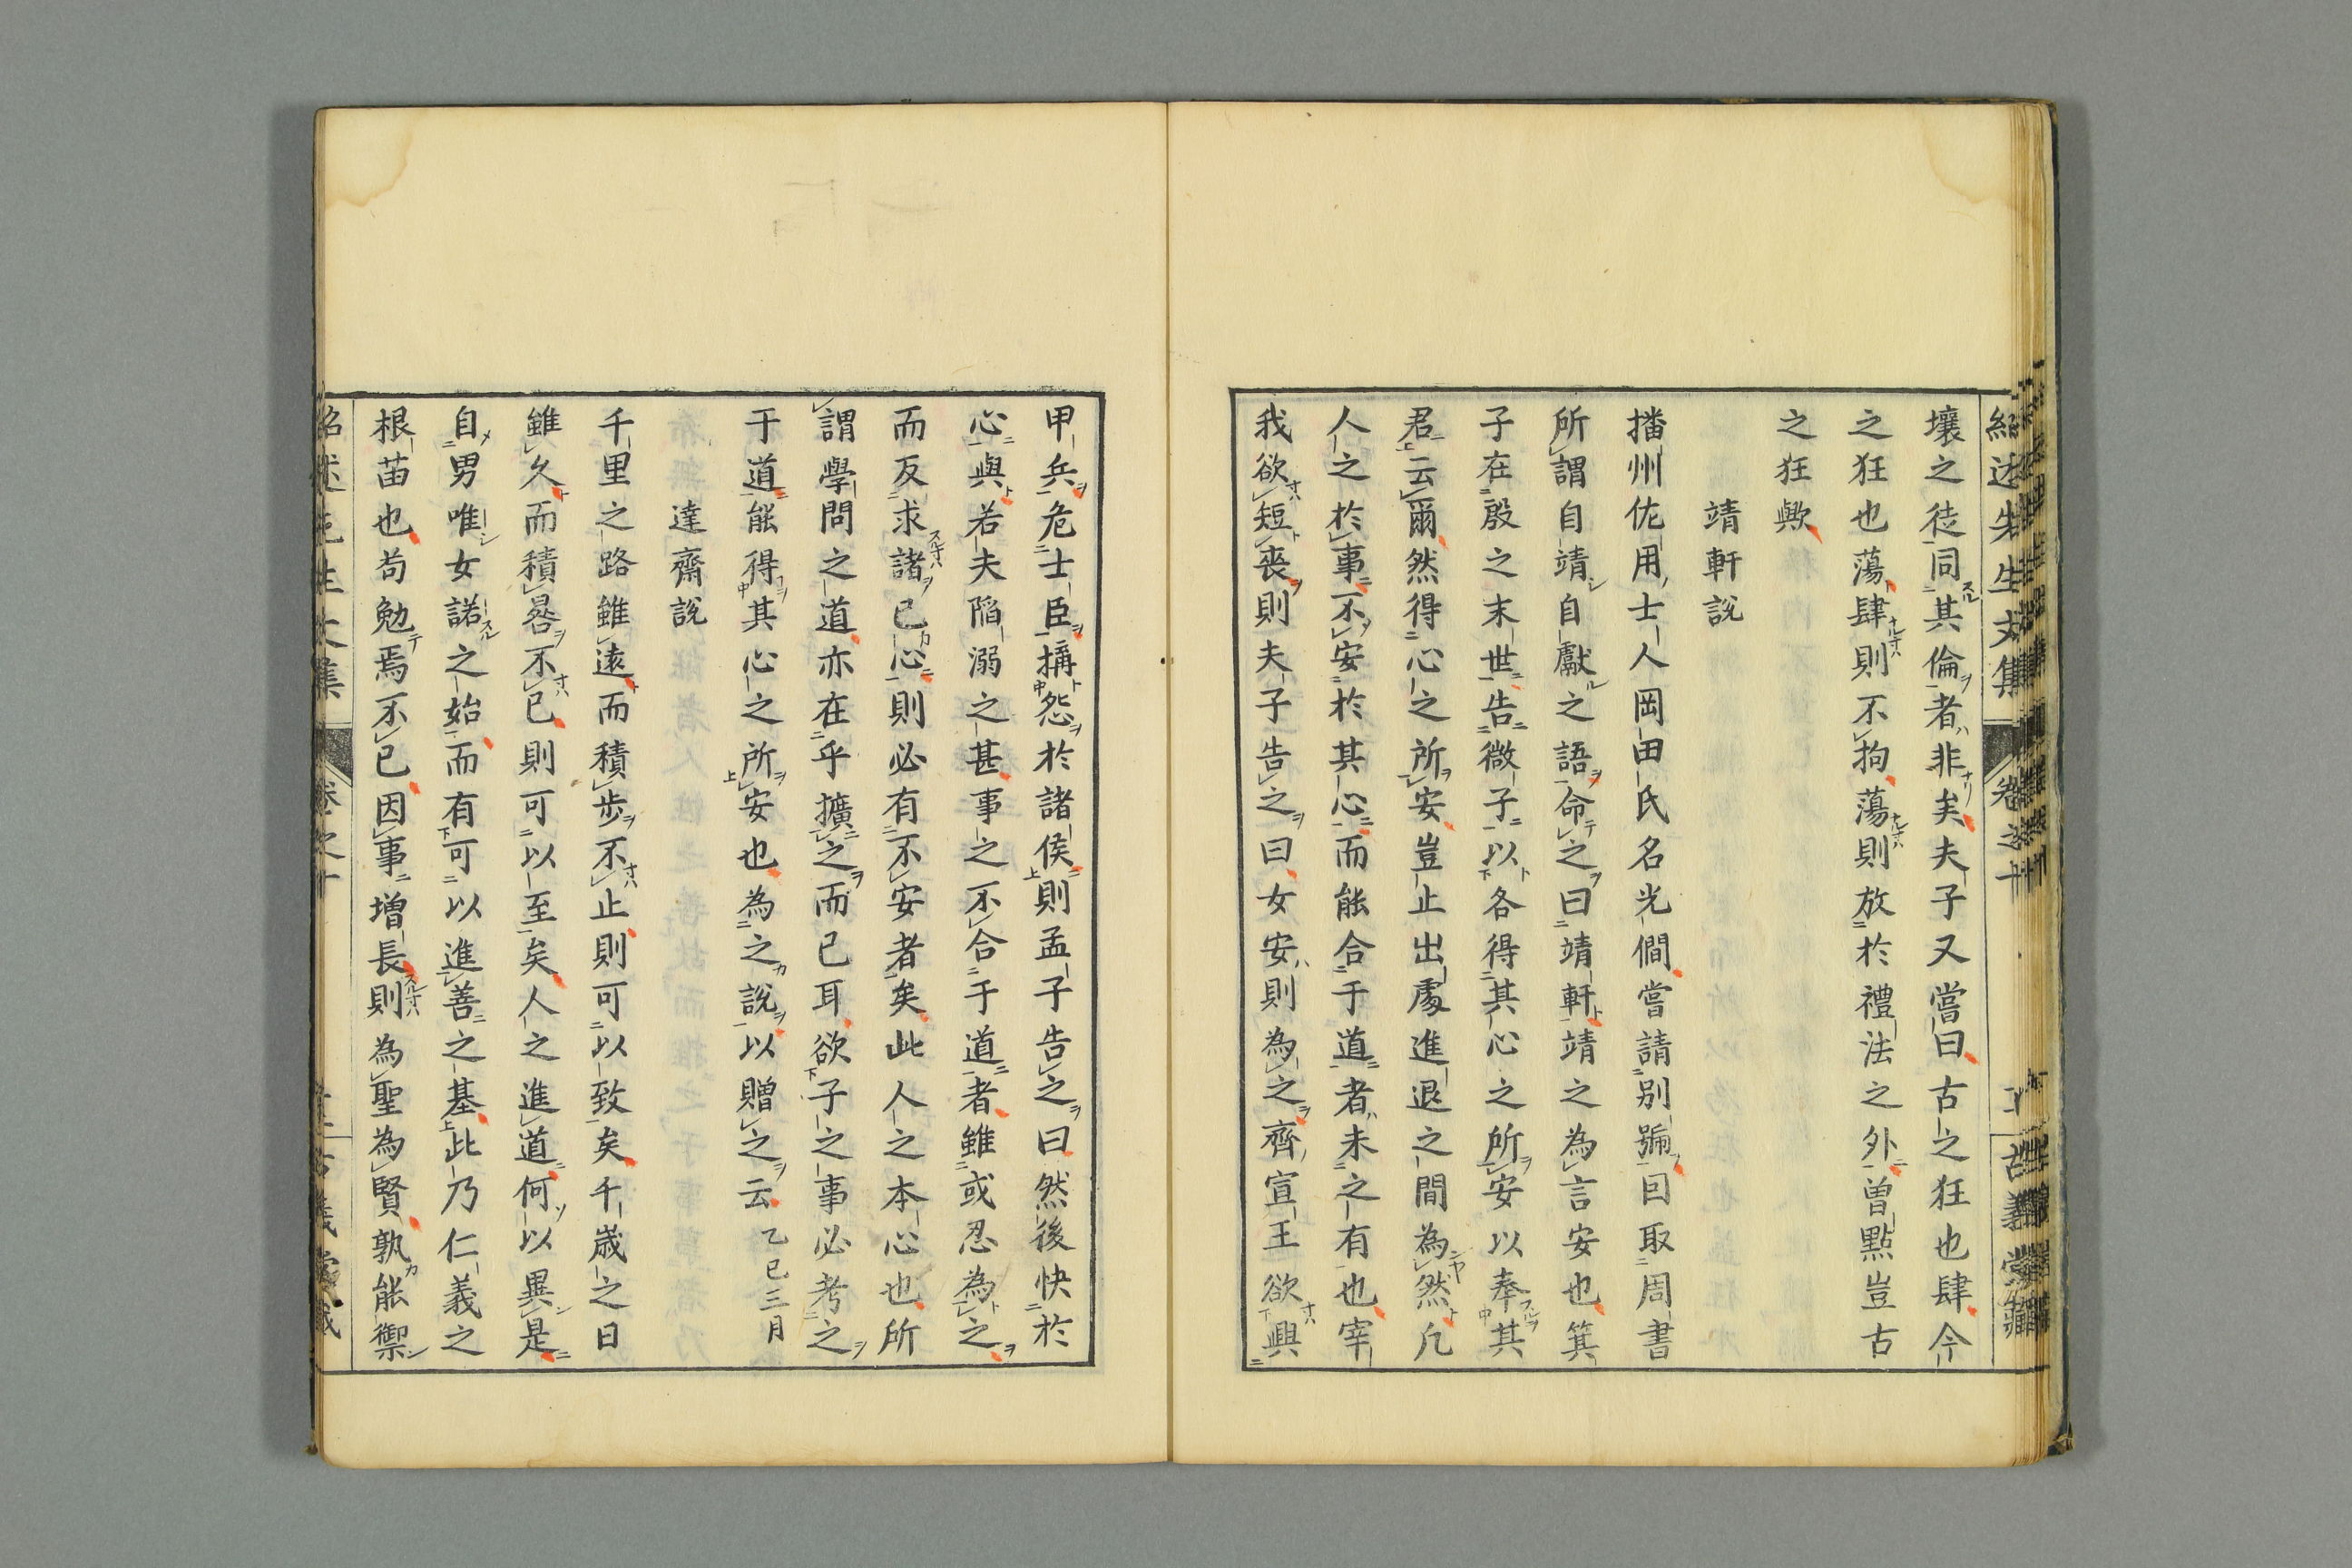 紹述先生文集 卷之十 古義堂藏
壤之徒同其倫者非矣夫子又嘗曰古之狂也肆今
之狂也蕩肆則不拘蕩則放於禮法之外曽點豈古
之狂歟
靖軒說
播州佐用士人岡田氏名光僴嘗請別號囙取周書
所謂自靖自獻之語命之曰靖軒靖之為言安也箕
子在殷之末世告微子以各得其心之所安以奉其
君云爾然得心之所安豈止出處進退之間為然凢
人之於事不安於其心而能合于道者未之有也宰
我欲短喪則夫子告之曰女安則為之齊宣王欲興
甲兵危士臣搆怨於諸侯則孟子告之曰然後快於
心與若夫陷溺之甚事之不合于道者雖或忍為之
而反求諸已心則必有不安者矣此人之本心也所
謂學問之道亦在乎擴之而已耳欲子之事必考之
于道能得其心之所安也為之說以贈之云 乙巳三月
達齋說
千里之路雖遠而積步不止則可以致矣千歲之日
雖久而積晷不已則可以至矣人之進道何以異是
自男唯女諾之始而有可以進善之基此乃仁義之
根苗也苟勉焉不已因事增長則為聖為賢孰能禦
紹述先生文集 卷之十 古義堂藏